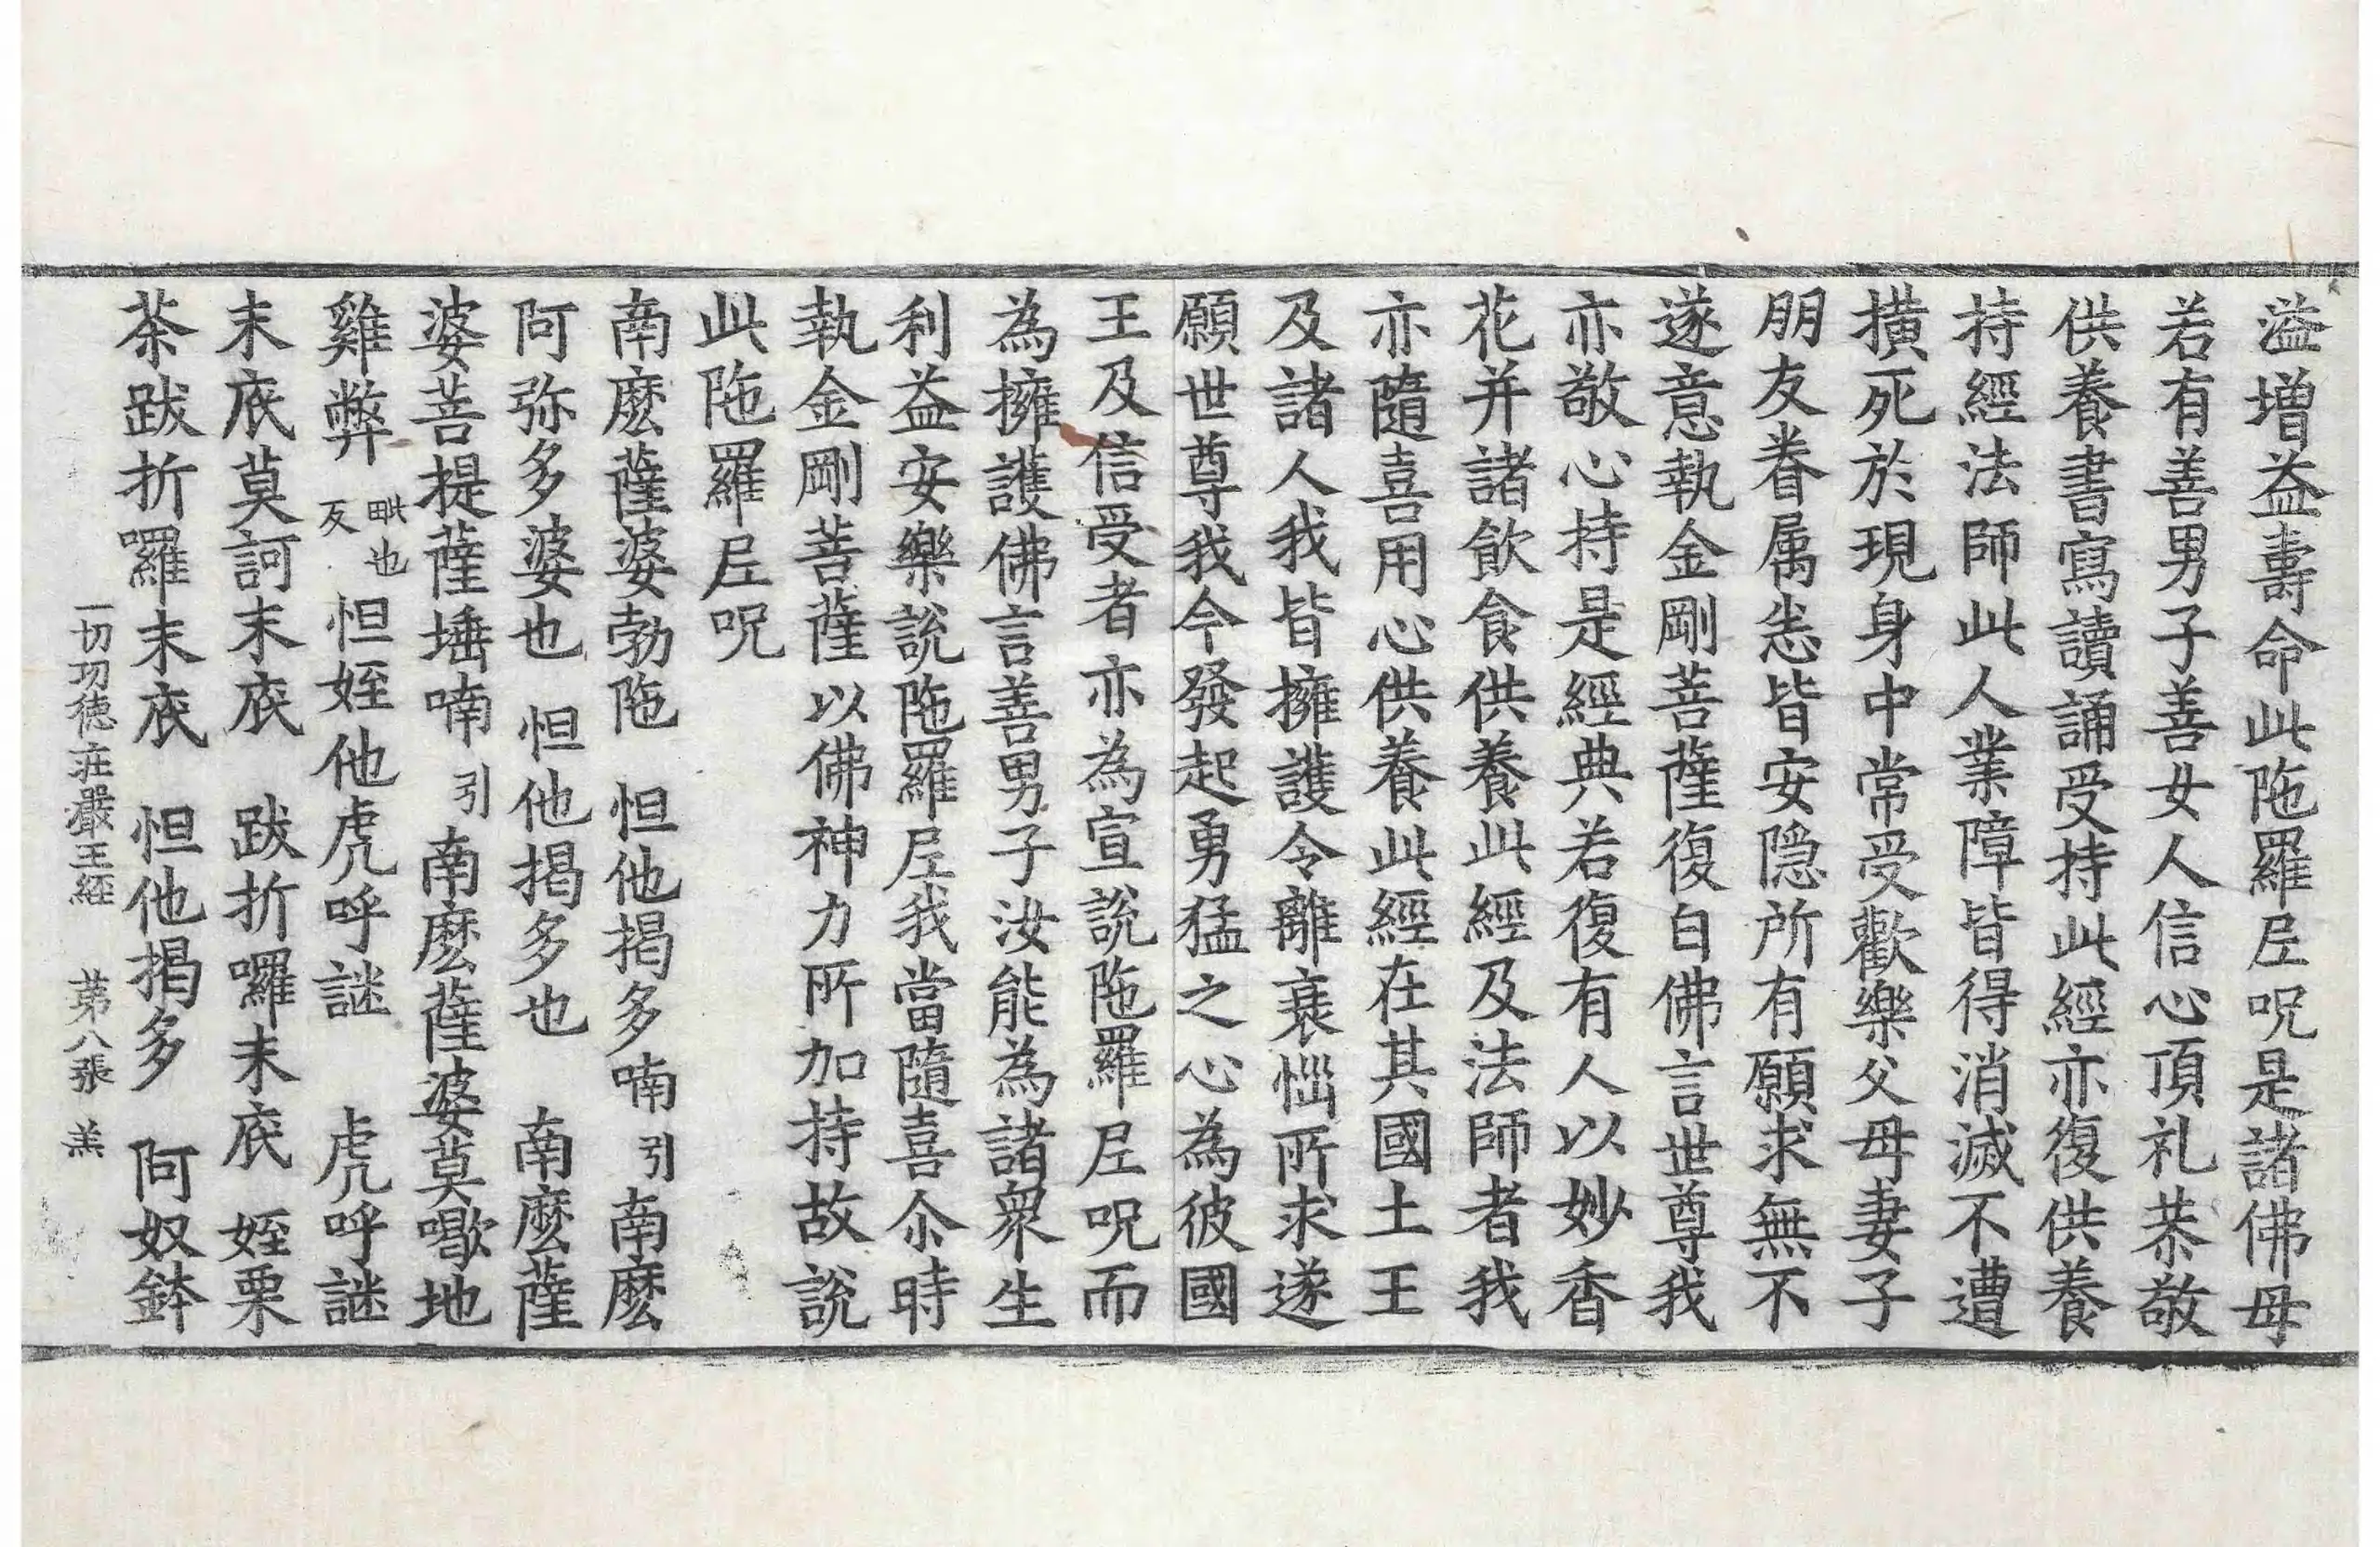 溢增益壽命此陁羅𡰱呪是諸佛母
若有善男子善女人信心頂礼恭敬
供養書寫讀誦受持此經亦復供養
持經法師此人業障皆得消滅不遭
撗死於現身中常受歡樂父母妻子
朋友眷属悉皆安隠所有願求無不
遂意執金剛菩薩復白佛言世尊我
亦敬心持是經典若復有人以妙香
花并諸飲食供養此經及法師者我
亦隨喜用心供養此經在其國土王
及諸人我皆擁護令離衰惱所求遂
願世尊我今發起勇猛之心為彼國
王及信受者亦為宣說陁羅𡰱呪而
為擁護佛言善男子汝能為諸衆生
利益安樂說陁羅𡰱我當隨喜尒時
執金剛菩薩以佛神力所加持故說
此陁羅𡰱呪
南麽薩婆勃陁 怛他揭多喃引南麽
阿弥多婆也 怛他揭多也 南麽薩
婆菩提薩埵喃引南麽薩婆莫㘁地
雞弊毗也反怛姪他虎呼謎 虎呼謎
末底莫訶末底 跋折囉末底 姪栗
茶跋折囉末底 怛他揭多 阿奴鉢
一切功徳莊嚴王經 苐八張 羔